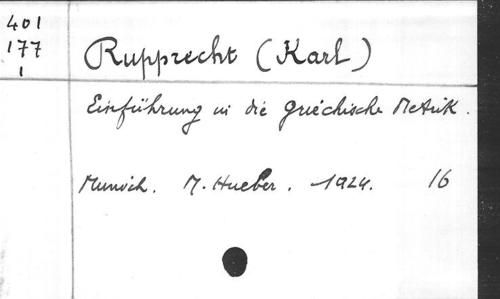 401
177
1
Rupprecht (Karl)
Einführung in die griechische Metrik.
Munich. M. Hueber. 1924. 16